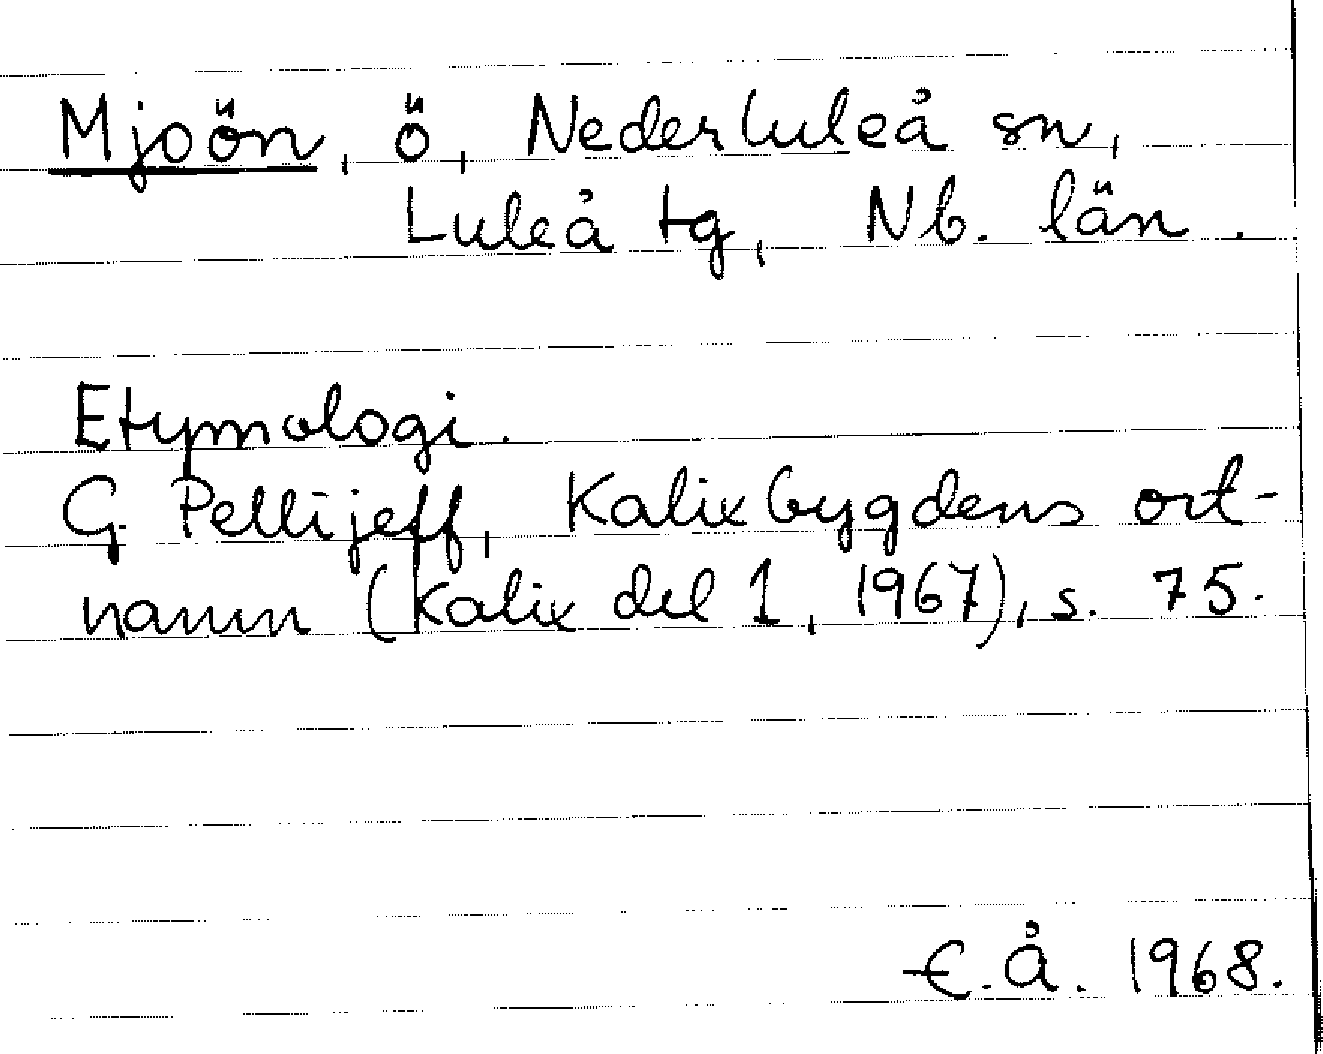 Mjoön, ö, Nederluleå sn,
Luleå tg, Nb. län.
Etymologi.
G Pellijeff, Kalixbygdens ort-
namn (Kalix del 1, 1967), s. 75.
E.Å. 1968.